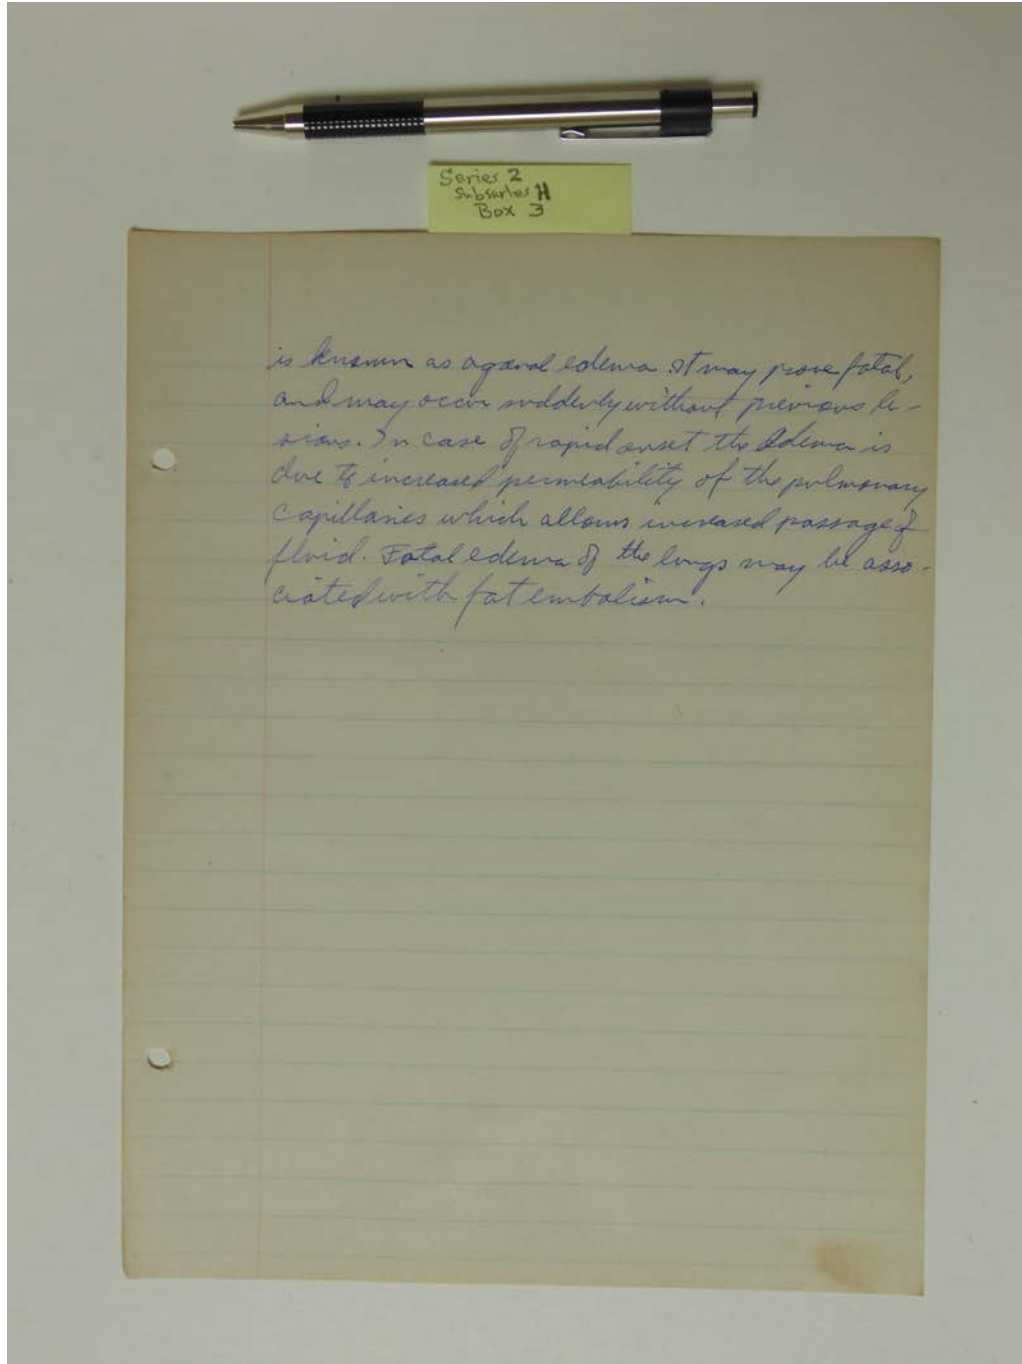 Series 2
Subseries H
Box 3
is known as agonal edema. It may prove fatal,
and may occur suddenly without previous le-
sions. In case of rapid onset the edema is
due to increased permeability of the pulmonary
capillaries which allows increased passage of
fluid. Fatal edema of the lungs may be asso-
ciated with fat embolism.